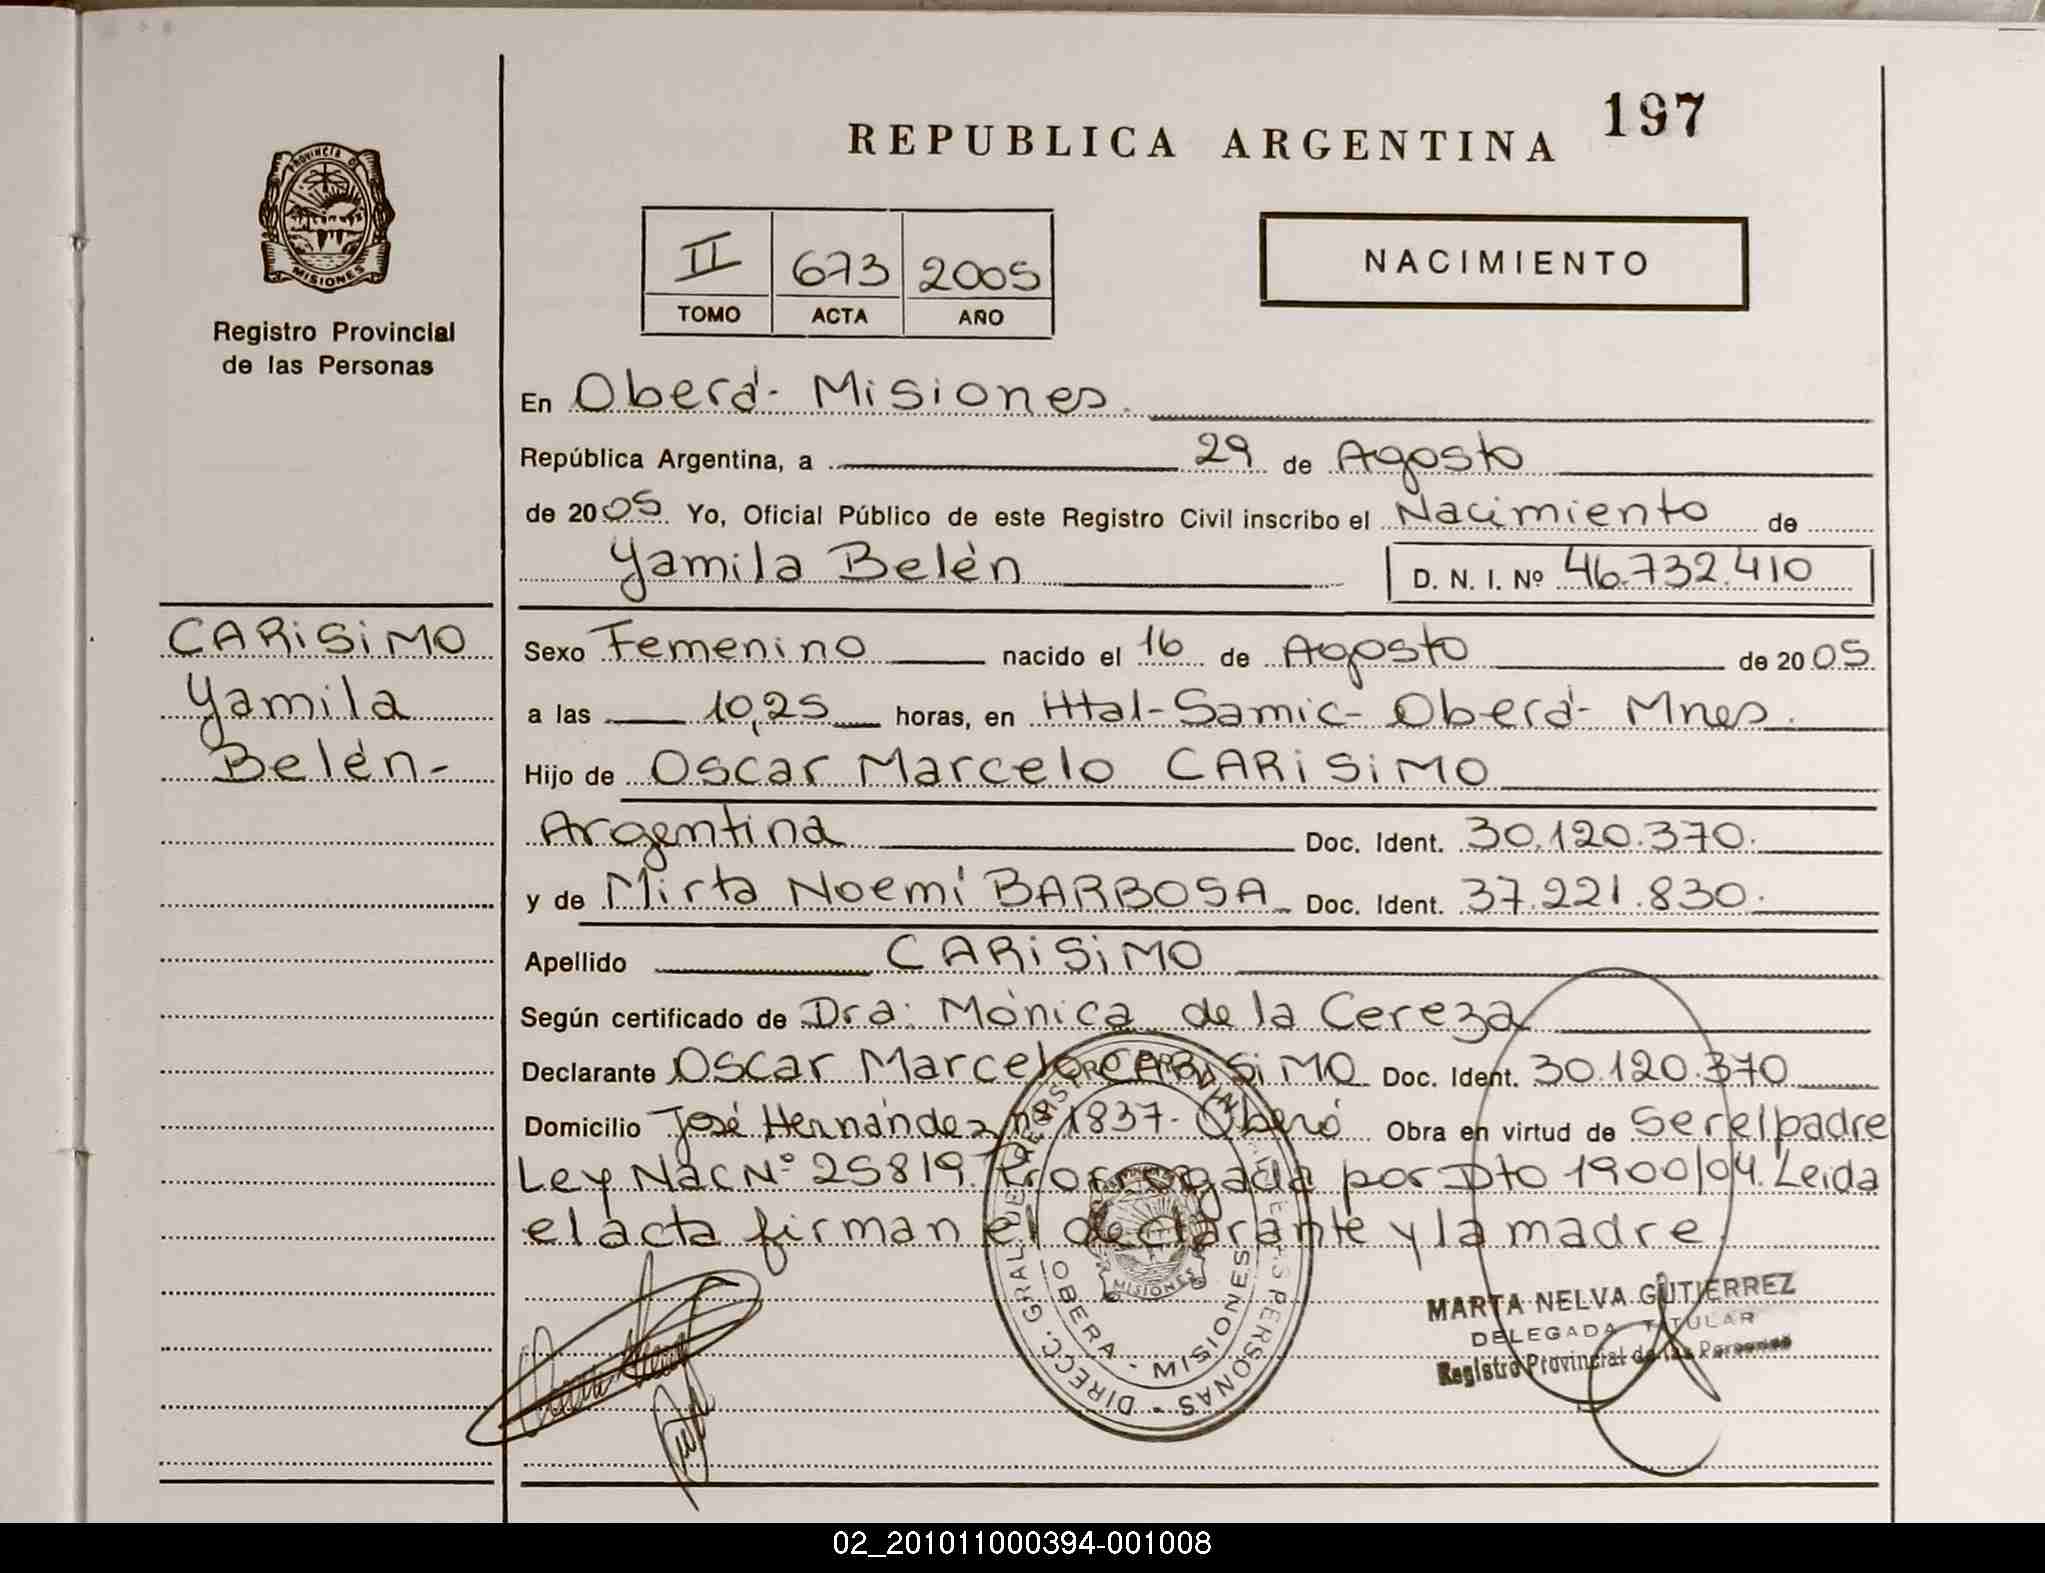 REPUBLICA ARGENTINA 197
PROVINCIA DE
MISIONES
Registro Provincial
de las Personas
II 673 2005
TOMO ACTA AÑO
NACIMIENTO
En Oberá - Misiones.
República Argentina, a 29 de Agosto
de 2005 Yo, Oficial Público de este Registro Civil inscribo el Nacimiento de
Yamila Belén D. N. I. Nº 46.732.410
CARISIMO
Yamila
Belén-
Sexo Femenino nacido el 16 de Agosto de 2005
a las 10,25 horas, en Htal-Samic- Oberá- Mnes.
Hijo de Oscar Marcelo CARISIMO
Argentina Doc. Ident. 30.120.370.
y de Mirta Noemí BARBOSA Doc. Ident. 37.221.830.
Apellido CARISIMO
Según certificado de Dra: Mónica de la Cereza
Declarante Oscar Marcelo CARISIMO Doc. Ident. 30.120.370
Domicilio José Hernández nº 1837- Oberá Obra en virtud de Ser el padre
Ley Nac Nº 25819. Prorrogada por Dto 1900/04. Leida
el acta firman el declarante y la madre.
DIRECC. GRAL. DEL REGISTRO PROVINCIAL DE LAS PERSONAS -
OBERA - MISIONES
MISIONES
MARTA NELVA GUTIERREZ
DELEGADA TITULAR
Registro Provincial de las Personas
02_201011000394-001008